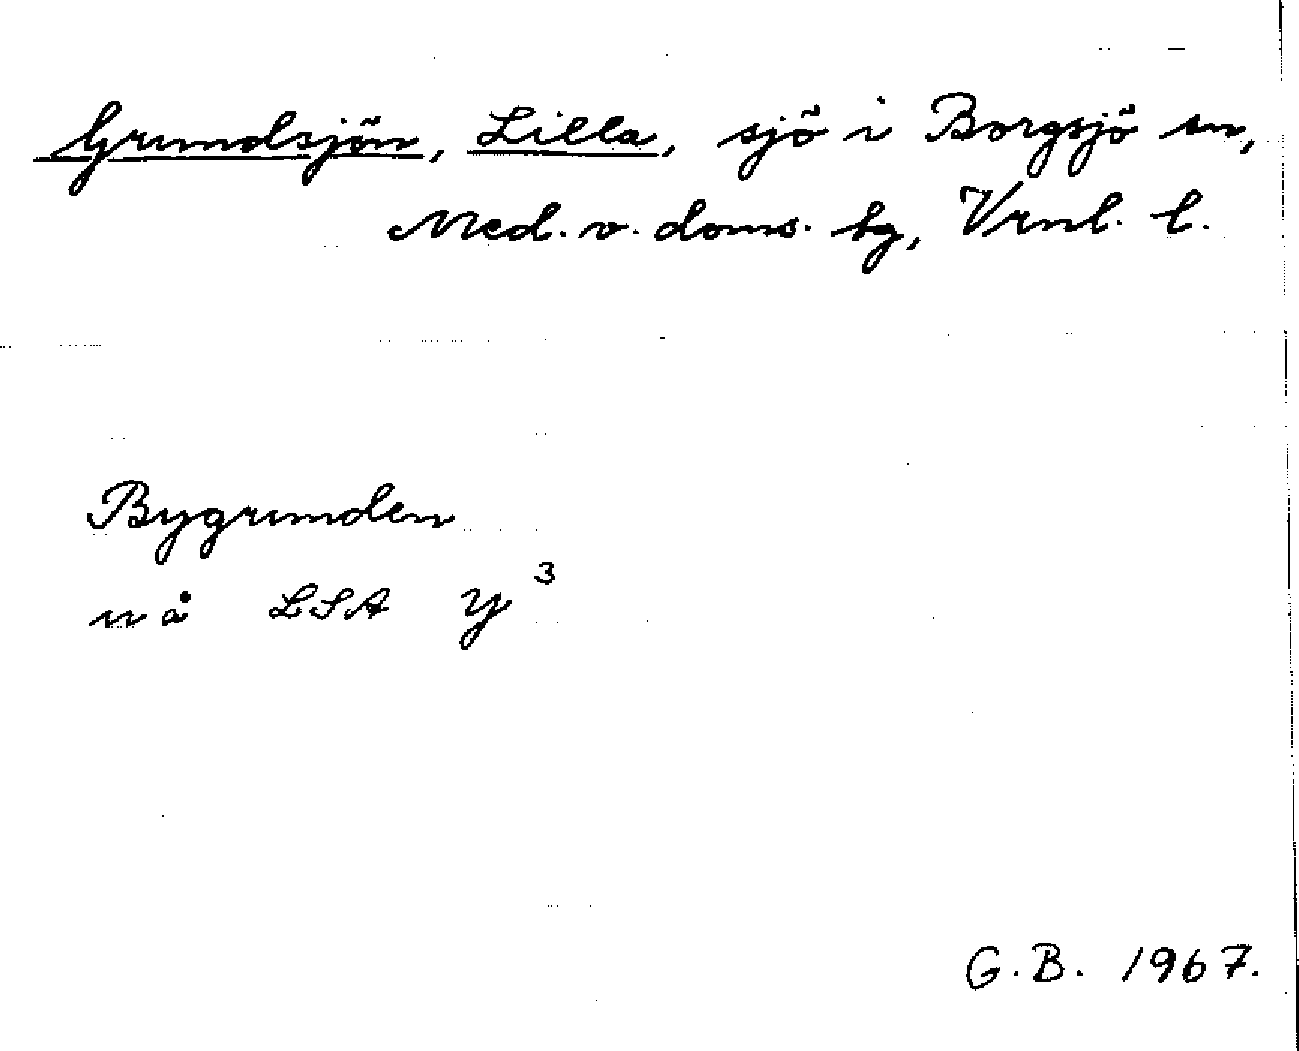 Grundsjön, Lilla, sjö i Borgsjö sn,
Med. v. doms. tg, Vrnl. l.
Bygrunden
nå LSA Y 3
G.B. 1967.